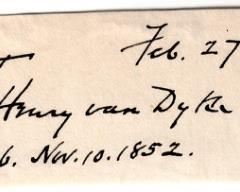 Feb. 27
Henry van Dyke
b. Nov. 10. 1852.